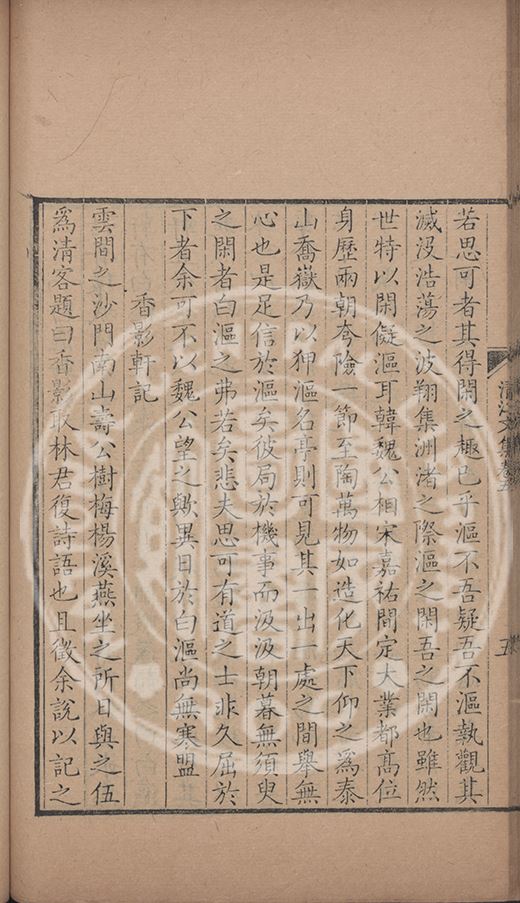 若思可者其得閑之趣已乎漚不吾疑吾不漚執觀其
滅没浩蕩之波翔集洲渚之際漚之閑吾之閑也雖然
世特以閑儗漚耳韓魏公相宋嘉祐間定大業都髙位
身歷兩朝夸險一節至陶萬物如造化天下仰之爲泰
山喬嶽乃以狎漚名亭則可見其一出一處之間舉無
心也是足信於漚矣彼局於機事而汲汲朝暮無須臾
之閑者白漚之弗若矣悲夫思可有道之士非久屈於
下者余可不以魏公望之歟異日於白漚尚無寒盟
香影軒記
雲間之沙門南山壽公樹梅楊溪燕坐之所日與之伍
爲清客題曰香影取林君復詩語也且徵余說以記之
清江文集卷五
五